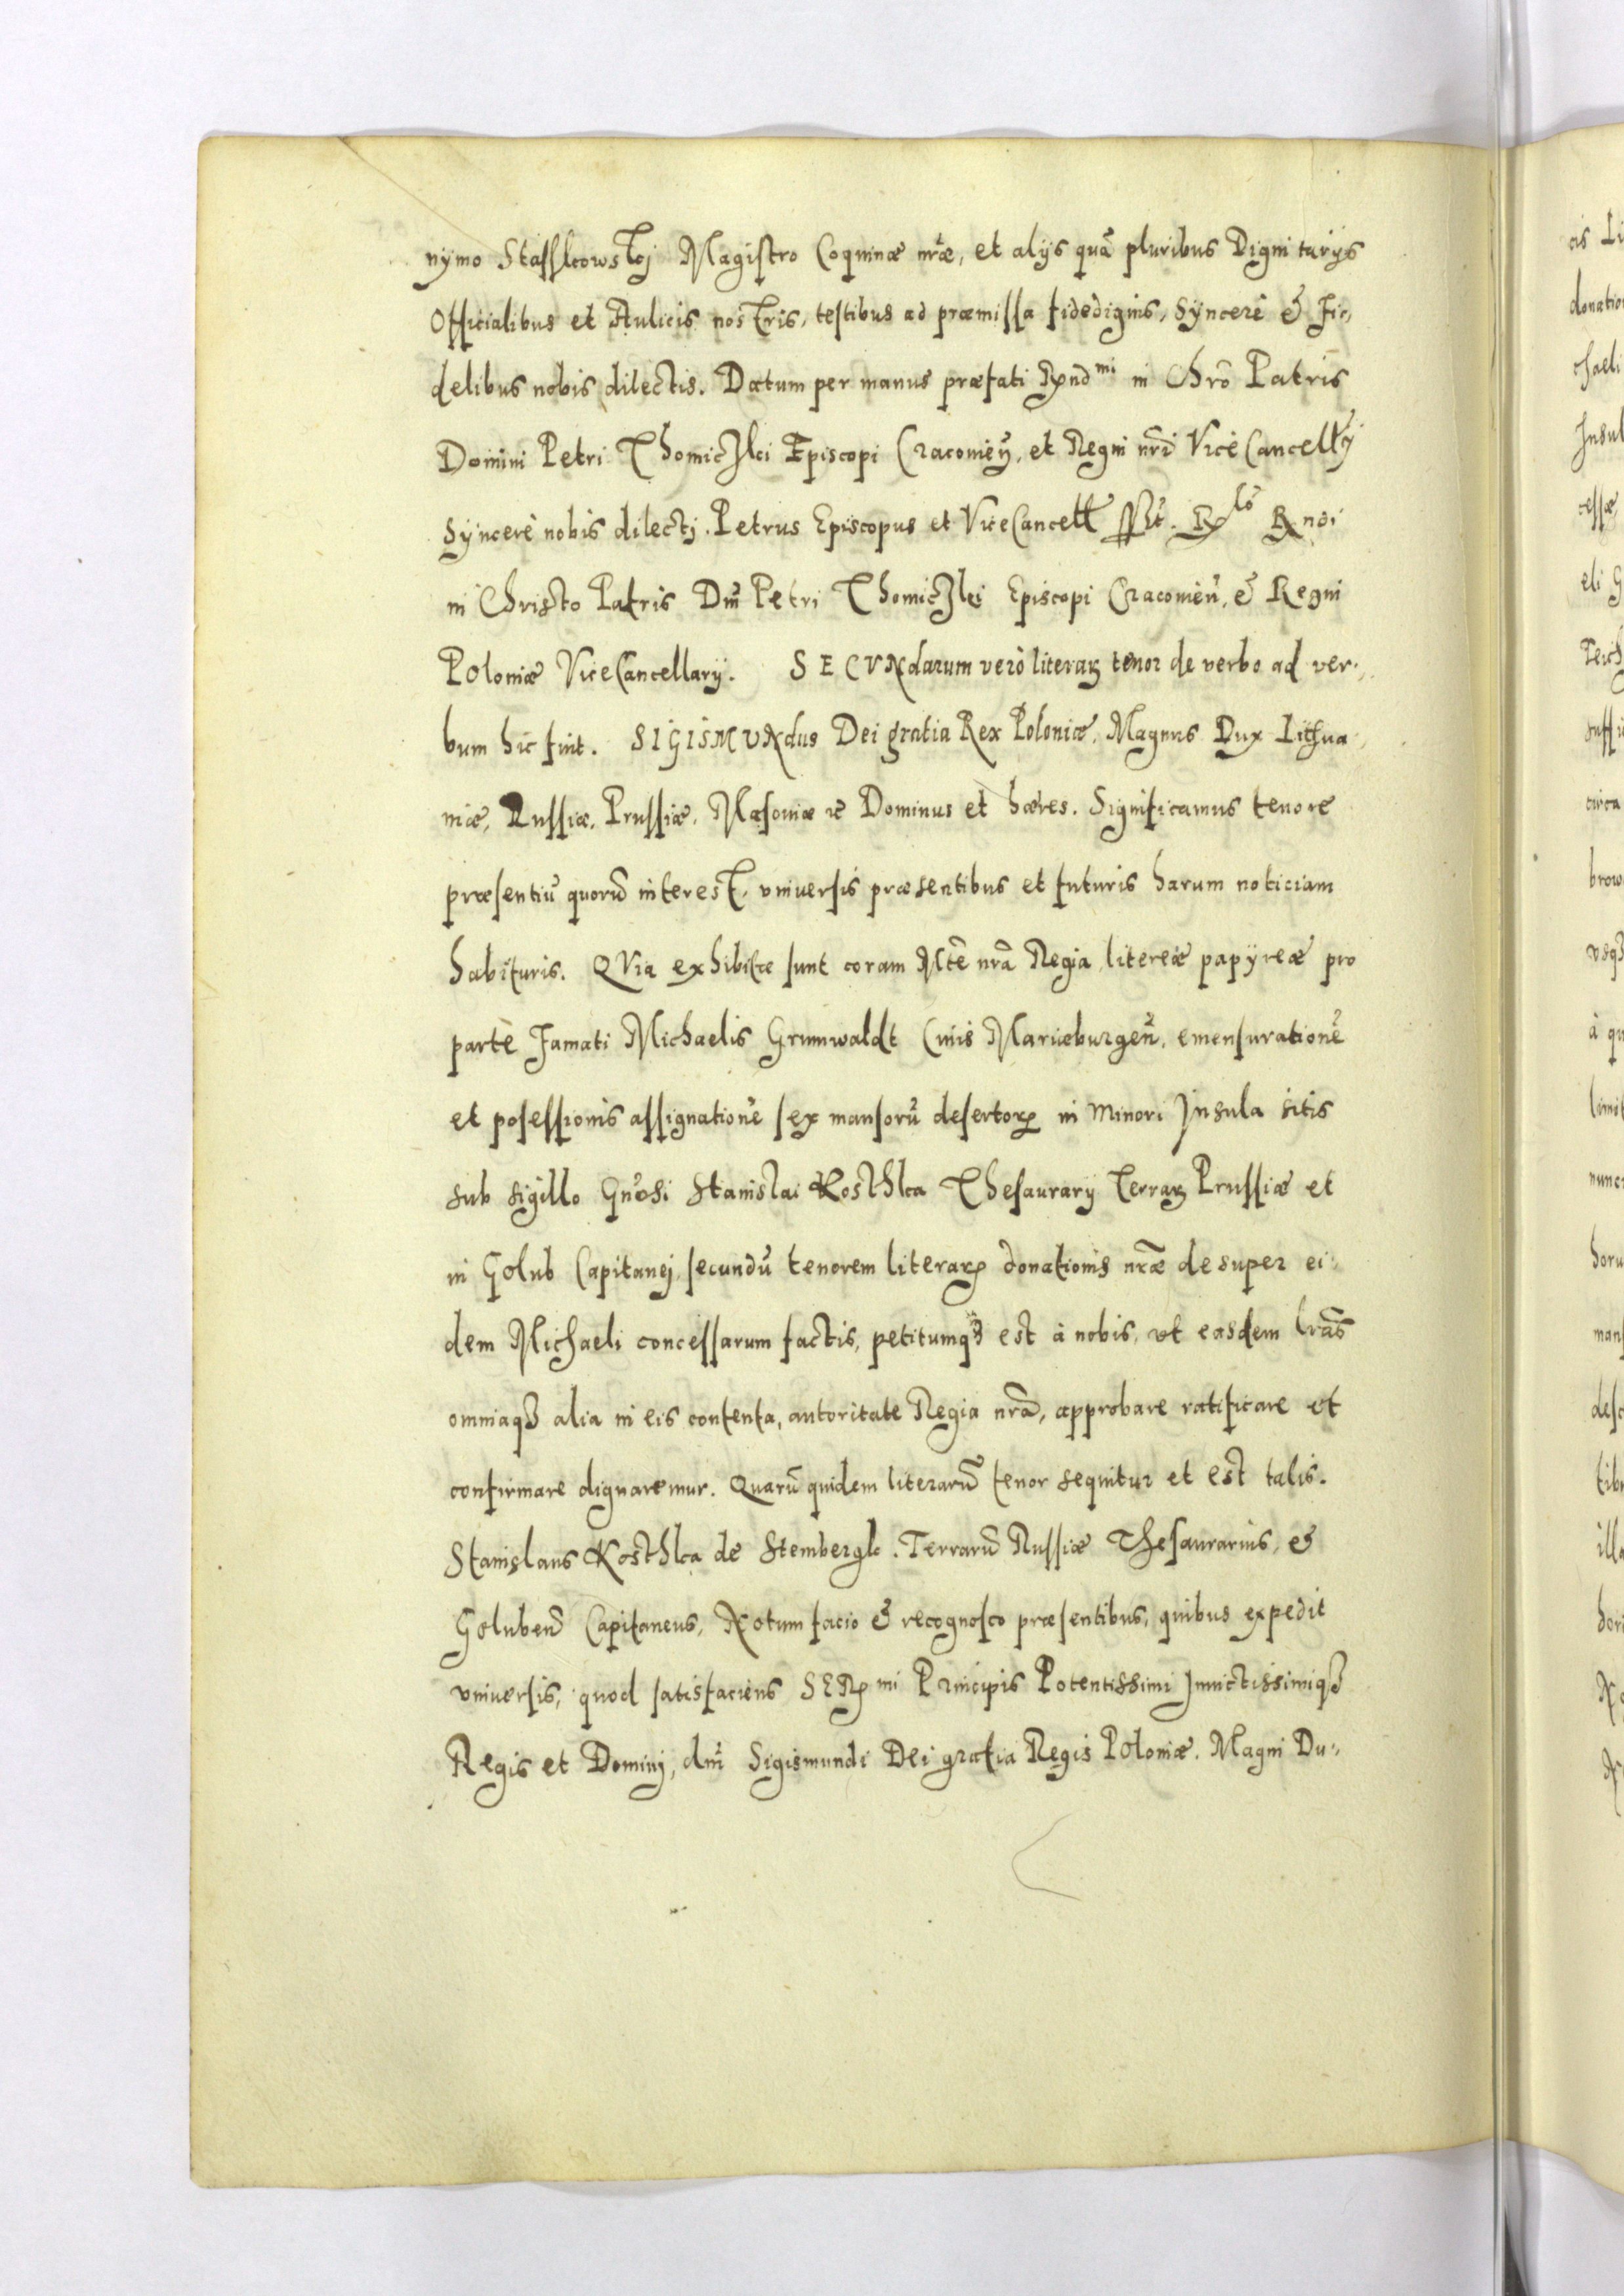 nymo Staſſkowskj Magiſtro Coquinæ nr̃æ, et alijs quã pluribus Dignitarijs
Officialibus et Aulicis nostris, teſtibus ad præmiſſa fidedignis, Synceré & Fi-
delibus nobis dilectis. Datum per manus præfati Rxnd mi in Chrõ Patris
Domini Petri Thomiczki Epiſcopi Cracovieñ, et Regni nr̃i ViceCancellrÿ
Synceré nobis dilectj. Petrus Episcopus et ViceCancell̃ ſſt. Rlõ Rndi
in Christo Patris Dñi Petri Thomiczki Episcopi Cracovień, & Regni
Poloniæ ViceCancellarÿ. SECVNdarum verò literaꝝ tenor de verbo ad ver-
bum hic fuit. SIGISMVNdus Dei gratia Rex Poloniæ, Magnus Dux Lithua-
niæ, Ruſſiæ, Pruſſiæ, Maſoviæ &c Dominus et hæres. Significamus tenore
præſentiũ quorũ interest, vniverſis præsentibus et futuris harum noticiam
habituris. QVia exhibitæ ſunt coram Mtẽ nr̃a Regia literæ papÿreæ pro
parte Famati Michaelis Grunwaldt Civis Mariæburgeñ, emenſurationẽ
et poſeſſionis aſſignationẽ ſex manſorũ deſertoꝝ in Minori Inſula sitis
sub sigillo Gñosi Stanislai Kosthka Theſaurarÿ Terraꝝ Pruſſiæ et
in Golub Capitanej, ſecundũ tenorem literaꝝ donationis nr̃æ desuper ei-
dem Michaeli conceſſarum factis, petitumqȝ est à nobis, vt easdem lr̃as
omniaqȝ alia in eis contenta, autoritate Regia nr̃a, approbare ratificare et
confirmare dignaremur. Quarũ quidem literarũ tenor sequitur et est talis.
Stanislaus Kosthka de Stembergk. Terrarũ Ruſſiæ Theſaurarius, &
Golubeñ Capitaneus, Notum facio & recognoſco præsentibus, quibus expedit
vniverſis, quod ſatisfaciens SERmi Principis Potentissimi Invictissimiqȝ
Regis et Dominj, dñi Sigismundi Dei gratia Regis Poloniæ. Magni Du-